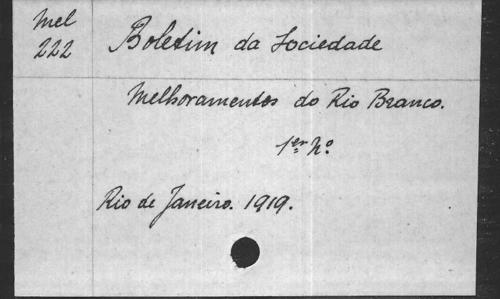 Mel
222
Boletim da Sociedade
Melhoramentos do Rio Branco.
1er No.
Rio de Janeiro. 1919.